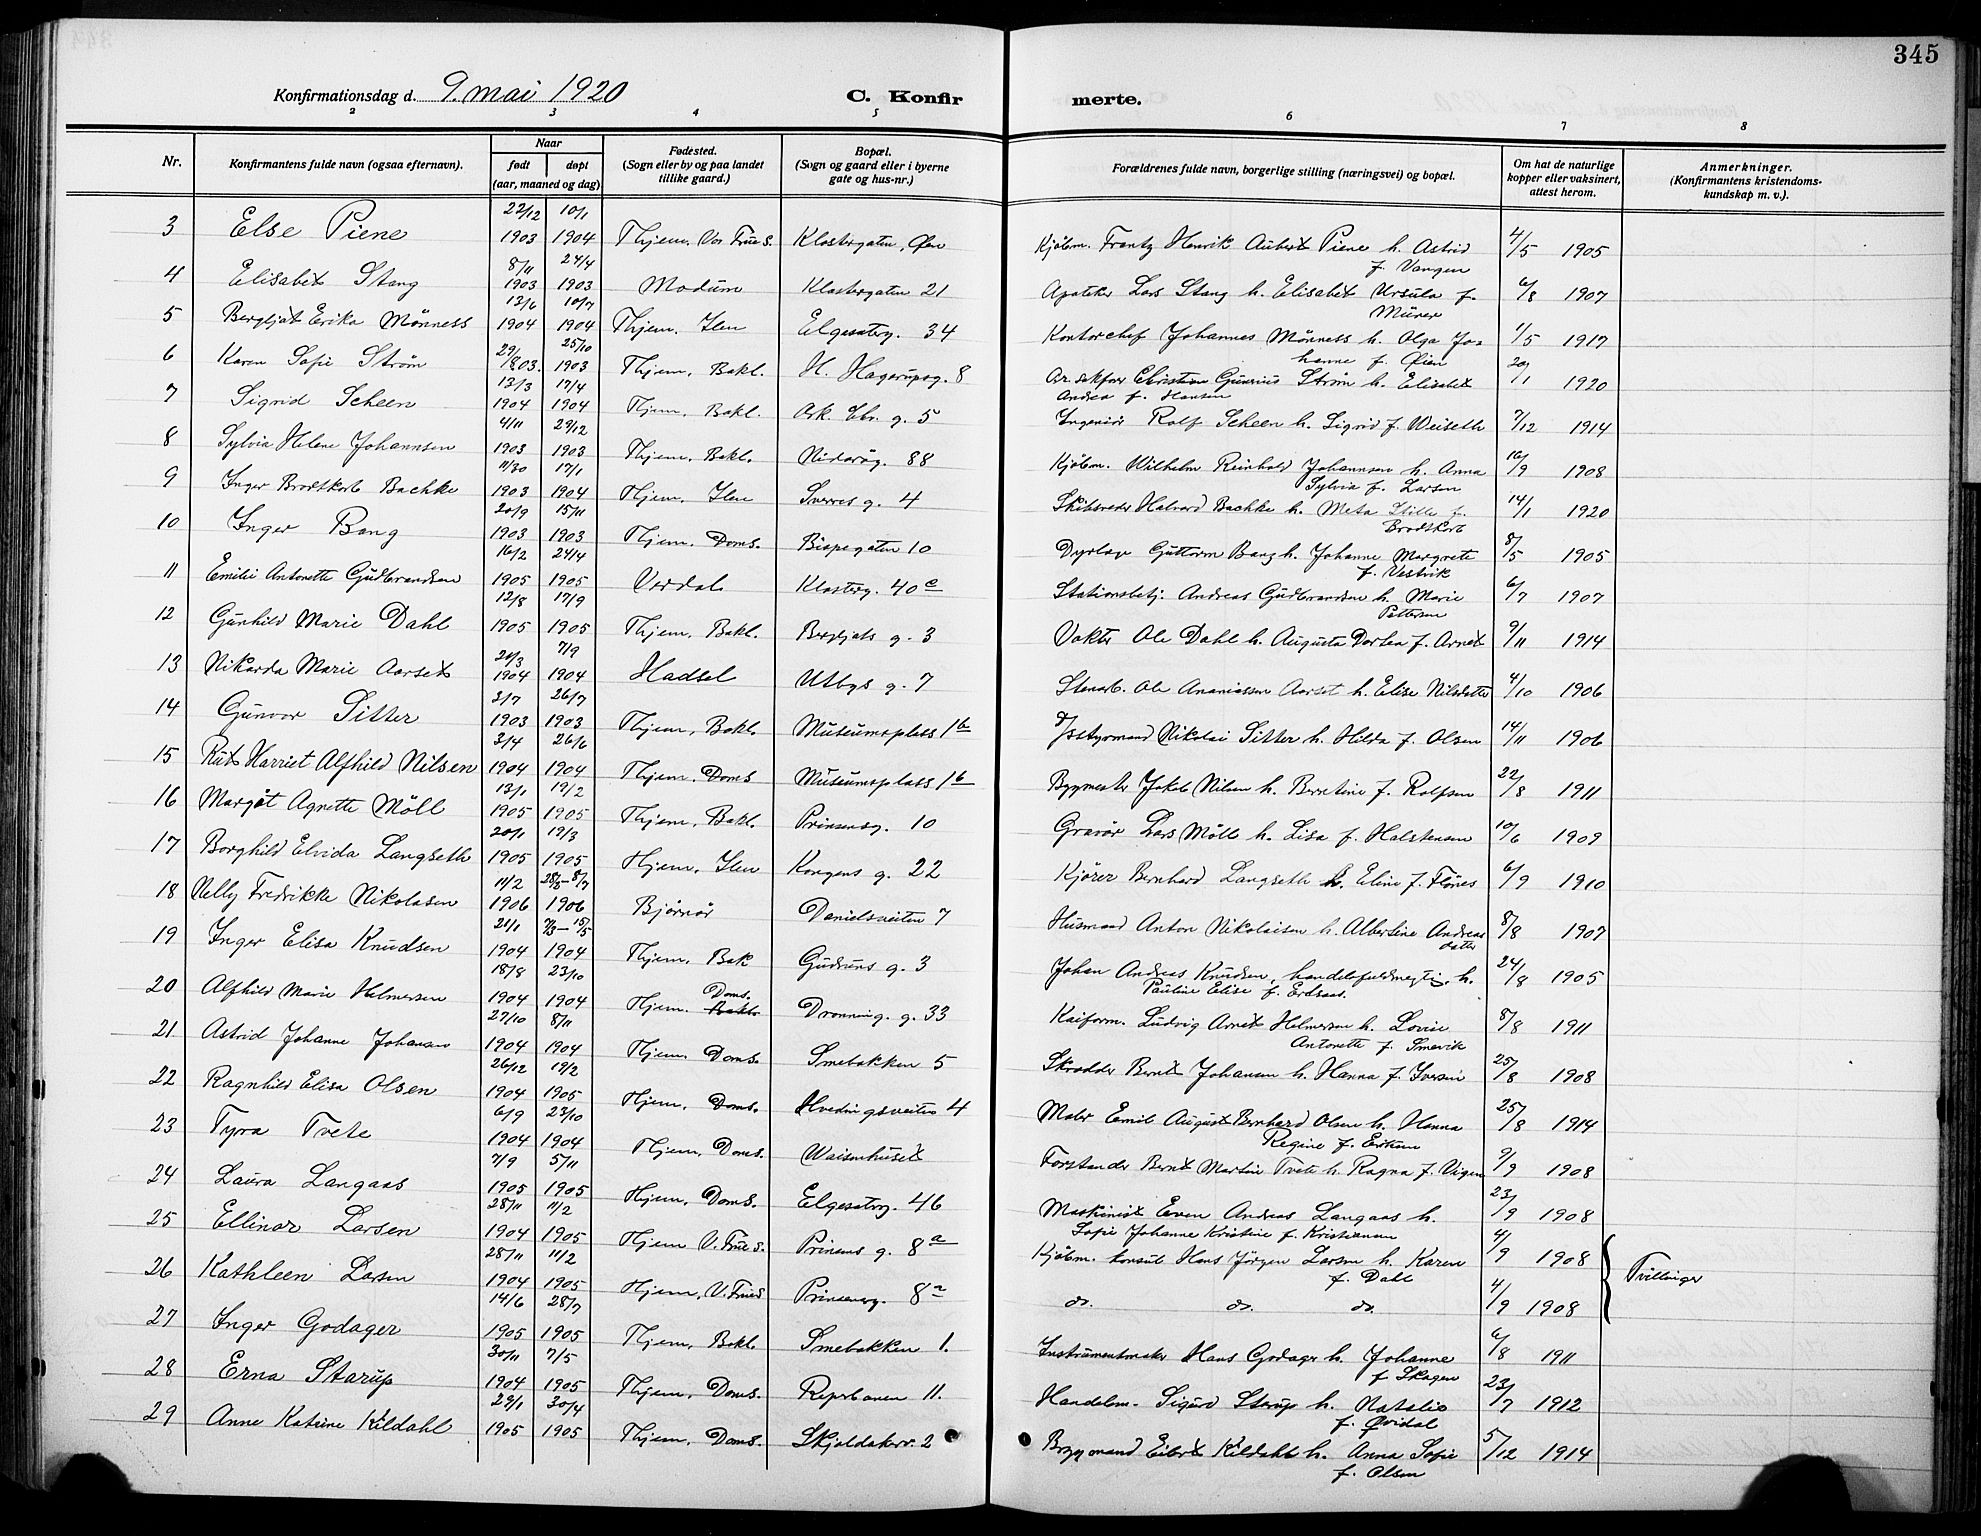 345
Konfirmationsdag d. 9. mai 1920
C. Konfir merte.
2 3 4 5 6 7 8
Nr.
Konfirmantens fulde navn (ogsaa efternavn).
Naar
født
døpt
(aar, maaned og dag)
Fødested.
(Sogn eller by og paa landet
tillike gaard.)
Bopæl.
(Sogn og gaard eller i byerne
gate og hus-nr.)
Forældrenes fulde navn, borgerlige stilling (næringsvei) og bopæl.
Om hat de naturlige
kopper eller vaksinert,
attest herom.
Anmerkninger.
(Konfirmantens kristendoms-
kundskap m. v.).
3 Else Piene 22/12 1903 10/1 1904 Thjem, Vor Frue S. Klostergaten, Øen Kjøbm. Frantz Henrik Aubert Piene h. Astrid f. Vangen 4/5 1905
4 Elisabet Stang 8/11 1903 24/4 1903 Modum Klostergaten 21 Apoteker Lars Stang h. Elisabet Ursula f. Mürer 6/8 1907
5 Bergljot Erika Mønness 12/6 1904 10/7 1904 Thjem. Ilen Elgesetrg. 34 Kontorchef Johannes Mønness h. Olga Jo-
hanne f. Øien 1/5 1917
6 Karen Sofie Strøm 29/8 03. 25/10 1903 Thjem, Bakl. H. Hagerupsg. 8 Christian Gunerius Strøm h. Elisabet
Andrea f. Hansen 20/1 1920
7 Sigrid Scheen 13/3 1904 17/4 1904 Thjem, Bakl. Ark. Chr. g. 5 Ingeniör Rolf Scheen h. Sigrid f. Weiseth 7/12 1914
8 Sylvia Helene Johannsen 4/11 1903 29/12 1903 Thjem, Bakl. Nidarög. 88 Kjøbm. Wilhelm Reinhold Johannsen h. Anna
Sylvia f. Larsen 16/9 1908
9 Inger Brodtkorb Bachke 11/30 1903 17/1 1904 Hjem, Ilen Sverres g. 4 Skibsreder Halvard Bachke h. Meta f.
Brodtkorb 14/1 1920
10 Inger Bang 20/9 1903 15/11 1903 Thjem, Doms. Bispegaten 10 Dyrlæge Guttorm Bang h. Johanne Margrete
f. Vestvik 8/5 1905
11 Emilie Antonette Gudbrandsen 16/2 1905 24/4 1905 Verdal Klosterg. 40 c Stationsbetj. Andreas Gudbrandsen h. Marie
Pettersen 6/7 1907
12 Gunhild Marie Dahl 12/8 1905 17/9 1905 Thjem, Bakl. Bergljots g. 3 Vokter Ole Dahl h. Augusta Dortea f. Arnet 9/11 1914
13 Nikarda Marie Aarset 20/3 1904 7/9 1904 Hadsel Utbys g. 7 Stenarb. Ole Ananiassen Aarset h. Elise Nilsdatter 4/10 1906
14 Gunvor Sitter 3/7 1903 26/7 1903 Thjem, Bakl. Museumsplass 1b Nikolai Sitter h. Hilda f. Olsen 14/11 1906
15 Rut Harriet Alfhild Nilsen 3/4 1904 26/6 1904 Thjem, Doms Museumsplass 1b Bygmester Jakob Nilsen h. Berntine f. Rolfsen 22/8 1911
16 Margot Agnette Möll 13/1 1905 19/2 1905 Thjem, Bakl. Prinsensg. 10 Gravör Lars Möll h. Lisa f. Halstensen 10/6 1909
17 Borghild Elvida Langseth 20/1 1905 19/3 1905 Hjem, Ilen Kongens g. 22 Kjörer Bernhard Langseth h. Eline f. Flönes 6/9 1910
18 Nelly Fredrikke Nikolasen 11/2 1906 28/3-8/7 1906 Bjørnör Danielsveiten 7 Husmand Anton Nikolaisen h. Albertine Andreas
datter 8/8 1907
19 Inger Elisa Knudsen 21/1 1904 7/3-15/5 1904 Thjem, Bak Gudruns g. 3 Johan Andreas Knudsen, handelsfuldmegtig, h.
Pauline Elise f. 24/8 1905
20 Alfhild Marie Helmersen 18/8 1904 23/10 1904 Hjem. Doms. Bakl. Dronning. g. 33 Kaiform. Ludvig Arnet Helmersen h. Lovise
Antonette f. Smevik 8/8 1911
21 Astrid Johanne Johansen 27/10 1904 8/11 1904 Hjem. Doms. Smebakken 5 Skrædder Bernt Johansen h. Hanna f. Iversen 25/8 1908
22 Ragnhild Elisa Olsen 26/12 1904 19/2 1905 Hjem, Doms. Hvedingsveiten 4 Maler Emil August Bernhard Olsen h. Hanna
Regine f. 25/8 1914
23 Tyra Tvete 6/9 1904 23/10 1904 Hjem, Doms. Waisenhuset Forstander Bernt Martin Tvete h. Ragna f. Viigen 9/9 1908
24 Laura Langaas 7/9 1905 5/11 1905 Hjem, Doms. Elgesetrg. 46 Maskinist Even Andreas Langaas h.
Sofie Johanne Kristine f. Kristiansen 23/9 1908
25 Ellinor Larsen 28/11 1904 11/2 1905 Hjem V. Frue S. Prinsens g. 8 a Kjøbm. konsul Hans Jørgen Larsen h. Karen
f. Dahl 4/9 1908
Tvillinger
26 Kathleen Larsen 28/11 1904 11/2 1905 Hjem, V. Frues Prinsensg. 8 a do. do. do. 4/9 1908
27 Inger Godager 14/6 1905 28/7 1905 Thjem, Bakl. Smebakken 1. Instrumentmaker Hans Godager h. Johanne
f. Skogen 6/8 1911
28 Erna Starup 30/11 1904 7/5 1905 Thjem, Doms. Reperbanen 11. Handelsm. Sigurd Sterup h. Natalie
f. Øvidal 23/7 1912
29 Anne Katrine Kildahl 29/1 1905 30/4 1905 Thjem, Doms. Skjoldakerv. 2 Brygmand Eilert Kildahl h. Anna Sofie
f. Olsen 5/12 1914